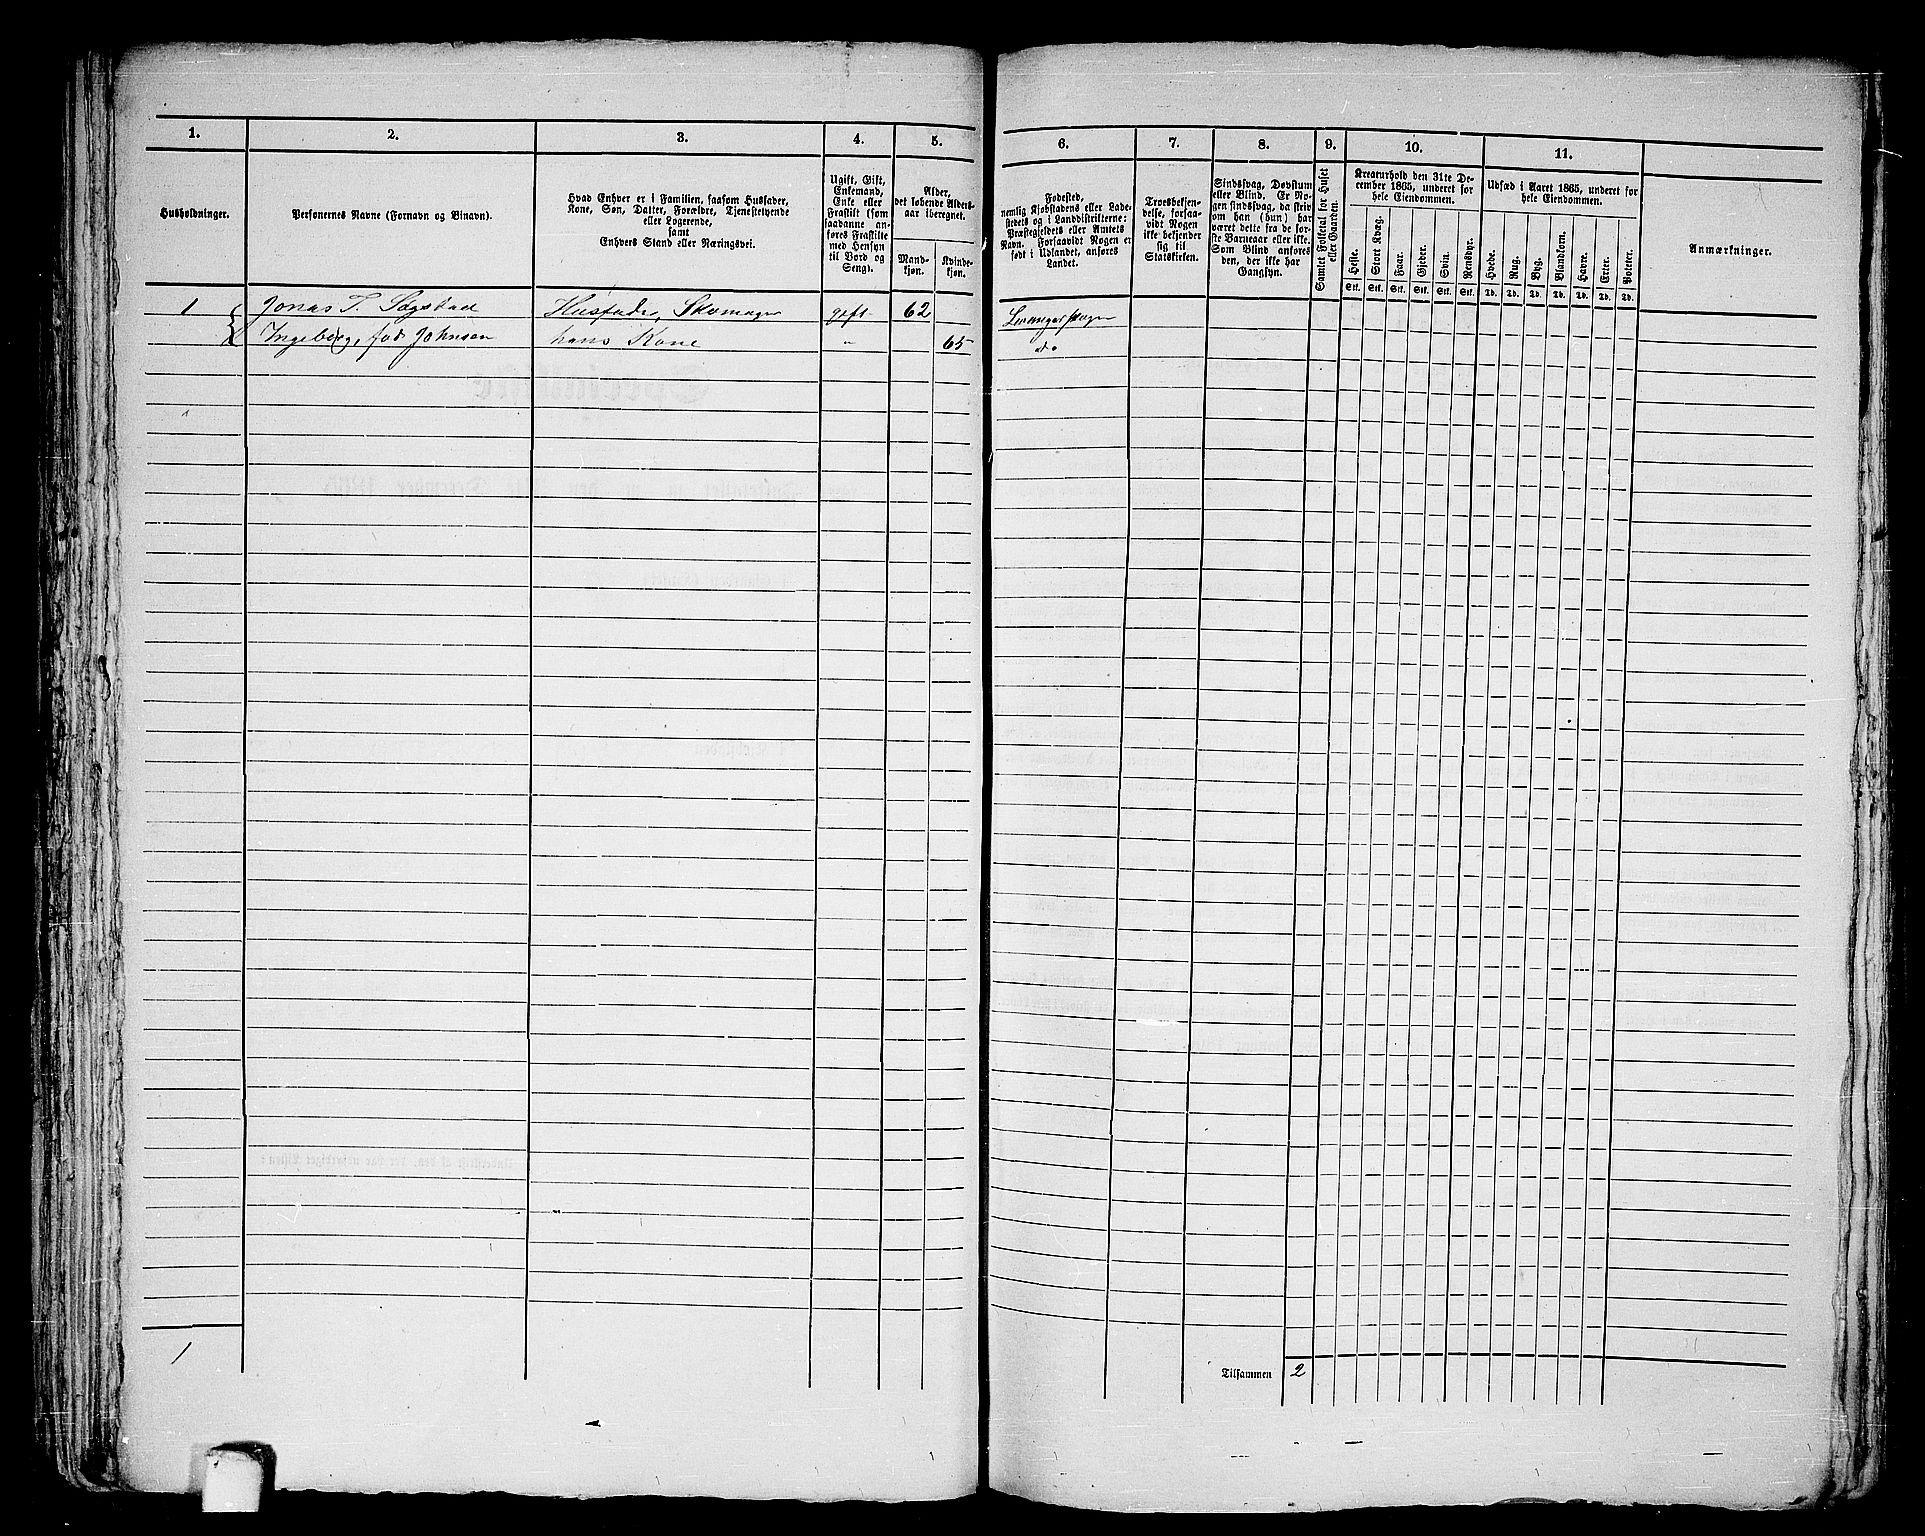 1. 2. 3. 4. 5. 6. 7. 8. 9. 10. 11.
Husholdninger.
Personernes Navne (Fornavn og Binavn).
Hvad Enhver er i Familien, saasom Husfader,
Kone, Søn, Datter, Forældre, Tjenestetyende
eller Logerende,
samt
Enhvers Stand eller Næringsvei.
Ugift, Gift,
Enkemand,
Enke eller
Fraskilt (som
saadanne an-
føres Fraskilte
med Hensyn
til Bord og
Seng).
Alder,
det løbende Alders-
aar iberegnet.
Mand-
kjøn.
Kvinde-
kjøn.
Fødested,
nemlig Kjøbstadens eller Lade-
stedets og i Landdistrikterne:
Præstegjeldets eller Amtets
Navn. Forsaavidt Nogen er
født i Udlandet, anføres
Landet.
Troesbekjen-
delse, forsaa-
vidt Nogen
ikke bekjender
sig til
Statskirken.
Sindssvag, Døvstum
eller Blind. Er No-
gen sindssvag, da skrives
om han (hun) har
været dette fra de før-
ste Barneaar eller ikke.
Som Blind anføres
den, der ikke har
Gangsyn.
Samlet Folketal for Huset
eller Gaarden.
Kreaturhold den 31te De-
cember 1865, underet for
hele Eiendommen.
Heste. Stort Kvæg. Faar. Gjeder. Svin. Rensdyr.
Stk. Stk. Stk. Stk. Stk. Stk.
Udsæd i Aaret 1865, underet for
hele Eiendommen.
Hvede. Rug. Byg. Blandkorn. Havre. Erter. Poteter.
Td. Td. Td. Td. Td. Td. Td.
Anmærkninger.
1 Jonas T. Sagstad Husfader, Skomager gift 62
Ingeborg, fød Johnsen hans Kone " 65 do
1
Tilsammen 2